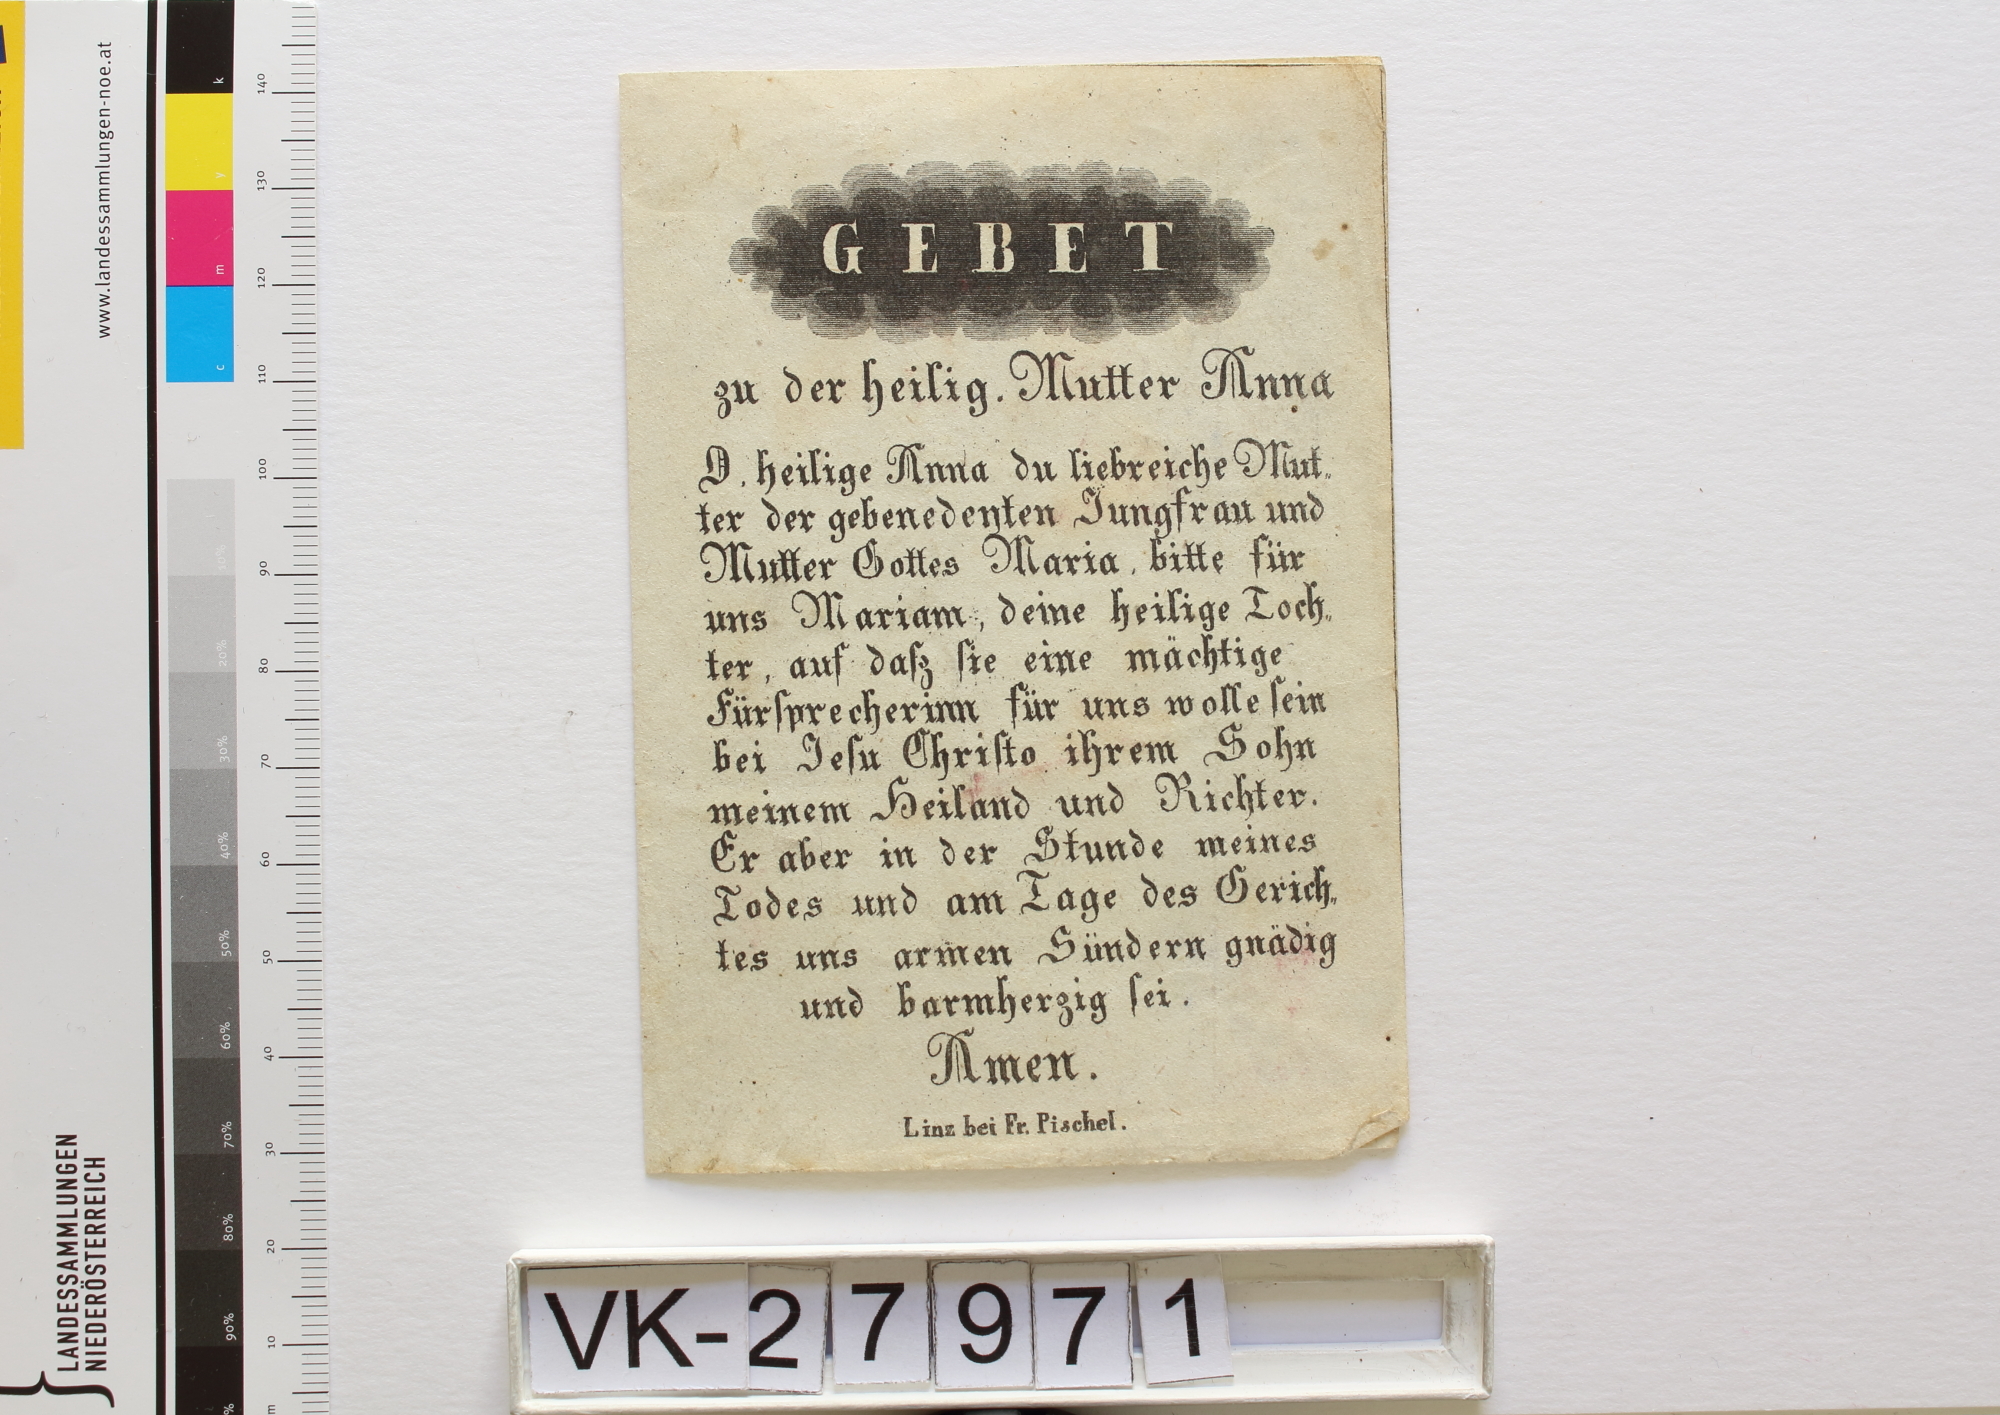 GEBET
zu der heilig. Mutter Anna
O, heilige Anna du liebreiche Mut-
ter der gebenedeyten Jungfrau und
Mutter Gottes Maria, bitte für
uns Mariam, deine heilige Toch-
ter, auf daſz ſie eine mächtige
Fürſprecherinn für uns wolle ſein
bei Jeſu Chriſto ihrem Sohn
meinem Heiland und Richter.
Er aber in der Stunde meines
Todes und am Tage des Gerich-
tes uns armen Sündern gnädig
und barmherzig ſei.
Amen.
Linz bei Fr. Pischel.
VK-27971
www.landessammlungen-noe.at
LANDESSAMMLUNGEN
NIEDERÖSTERREICH
k
y
m
c
10%
20%
30%
40%
50%
60%
70%
80%
90%
140
130
120
110
100
90
80
70
60
50
40
30
20
10